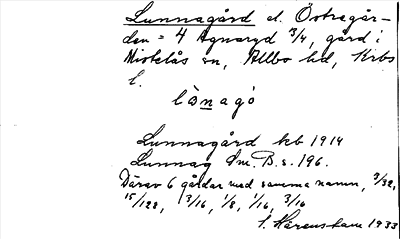 Lunnagård el. Östregår-
den = 4 Agnaryd 3/4, gård i
Mistelås sn, Allbo hd, Krbs
l.
Lunnagård kb 1914
Lunnag Sm. B. s. 196.
Därav 6 gårdar med samma namn, 3/32,
15/128, 3/16, 1/8, 1/16, 3/16
1933